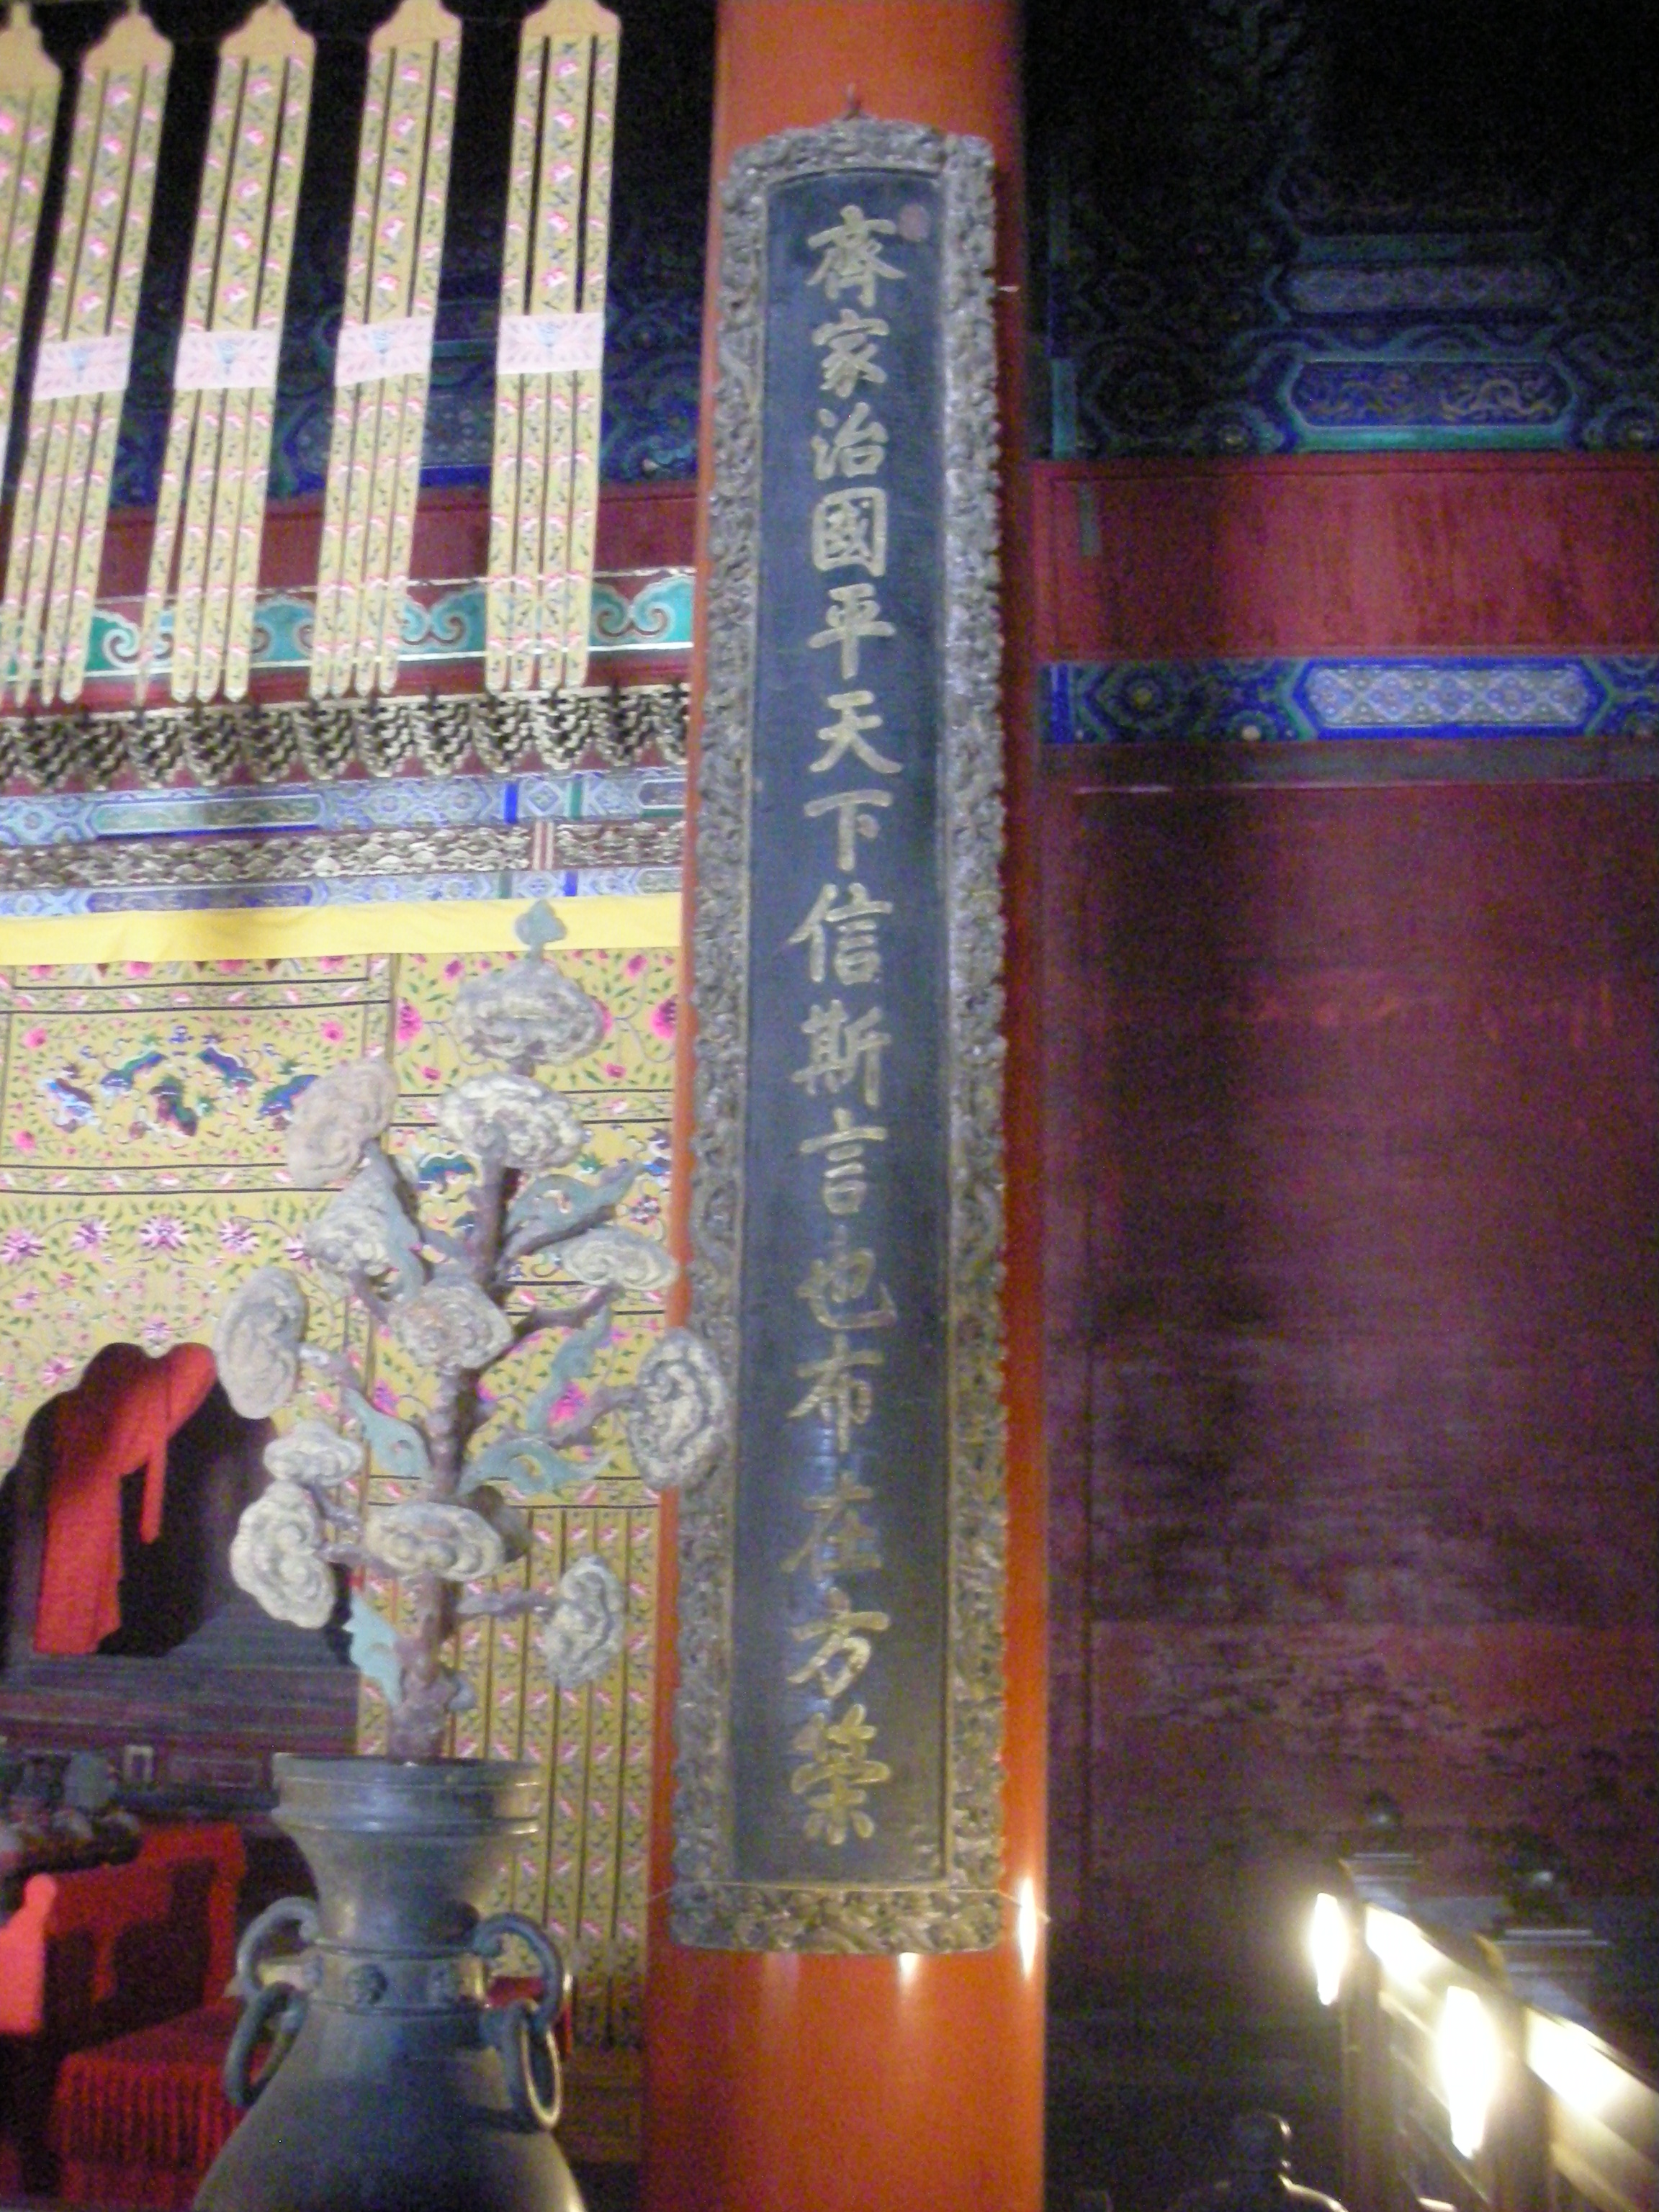 齊家治國平天下信斯言也布在方策